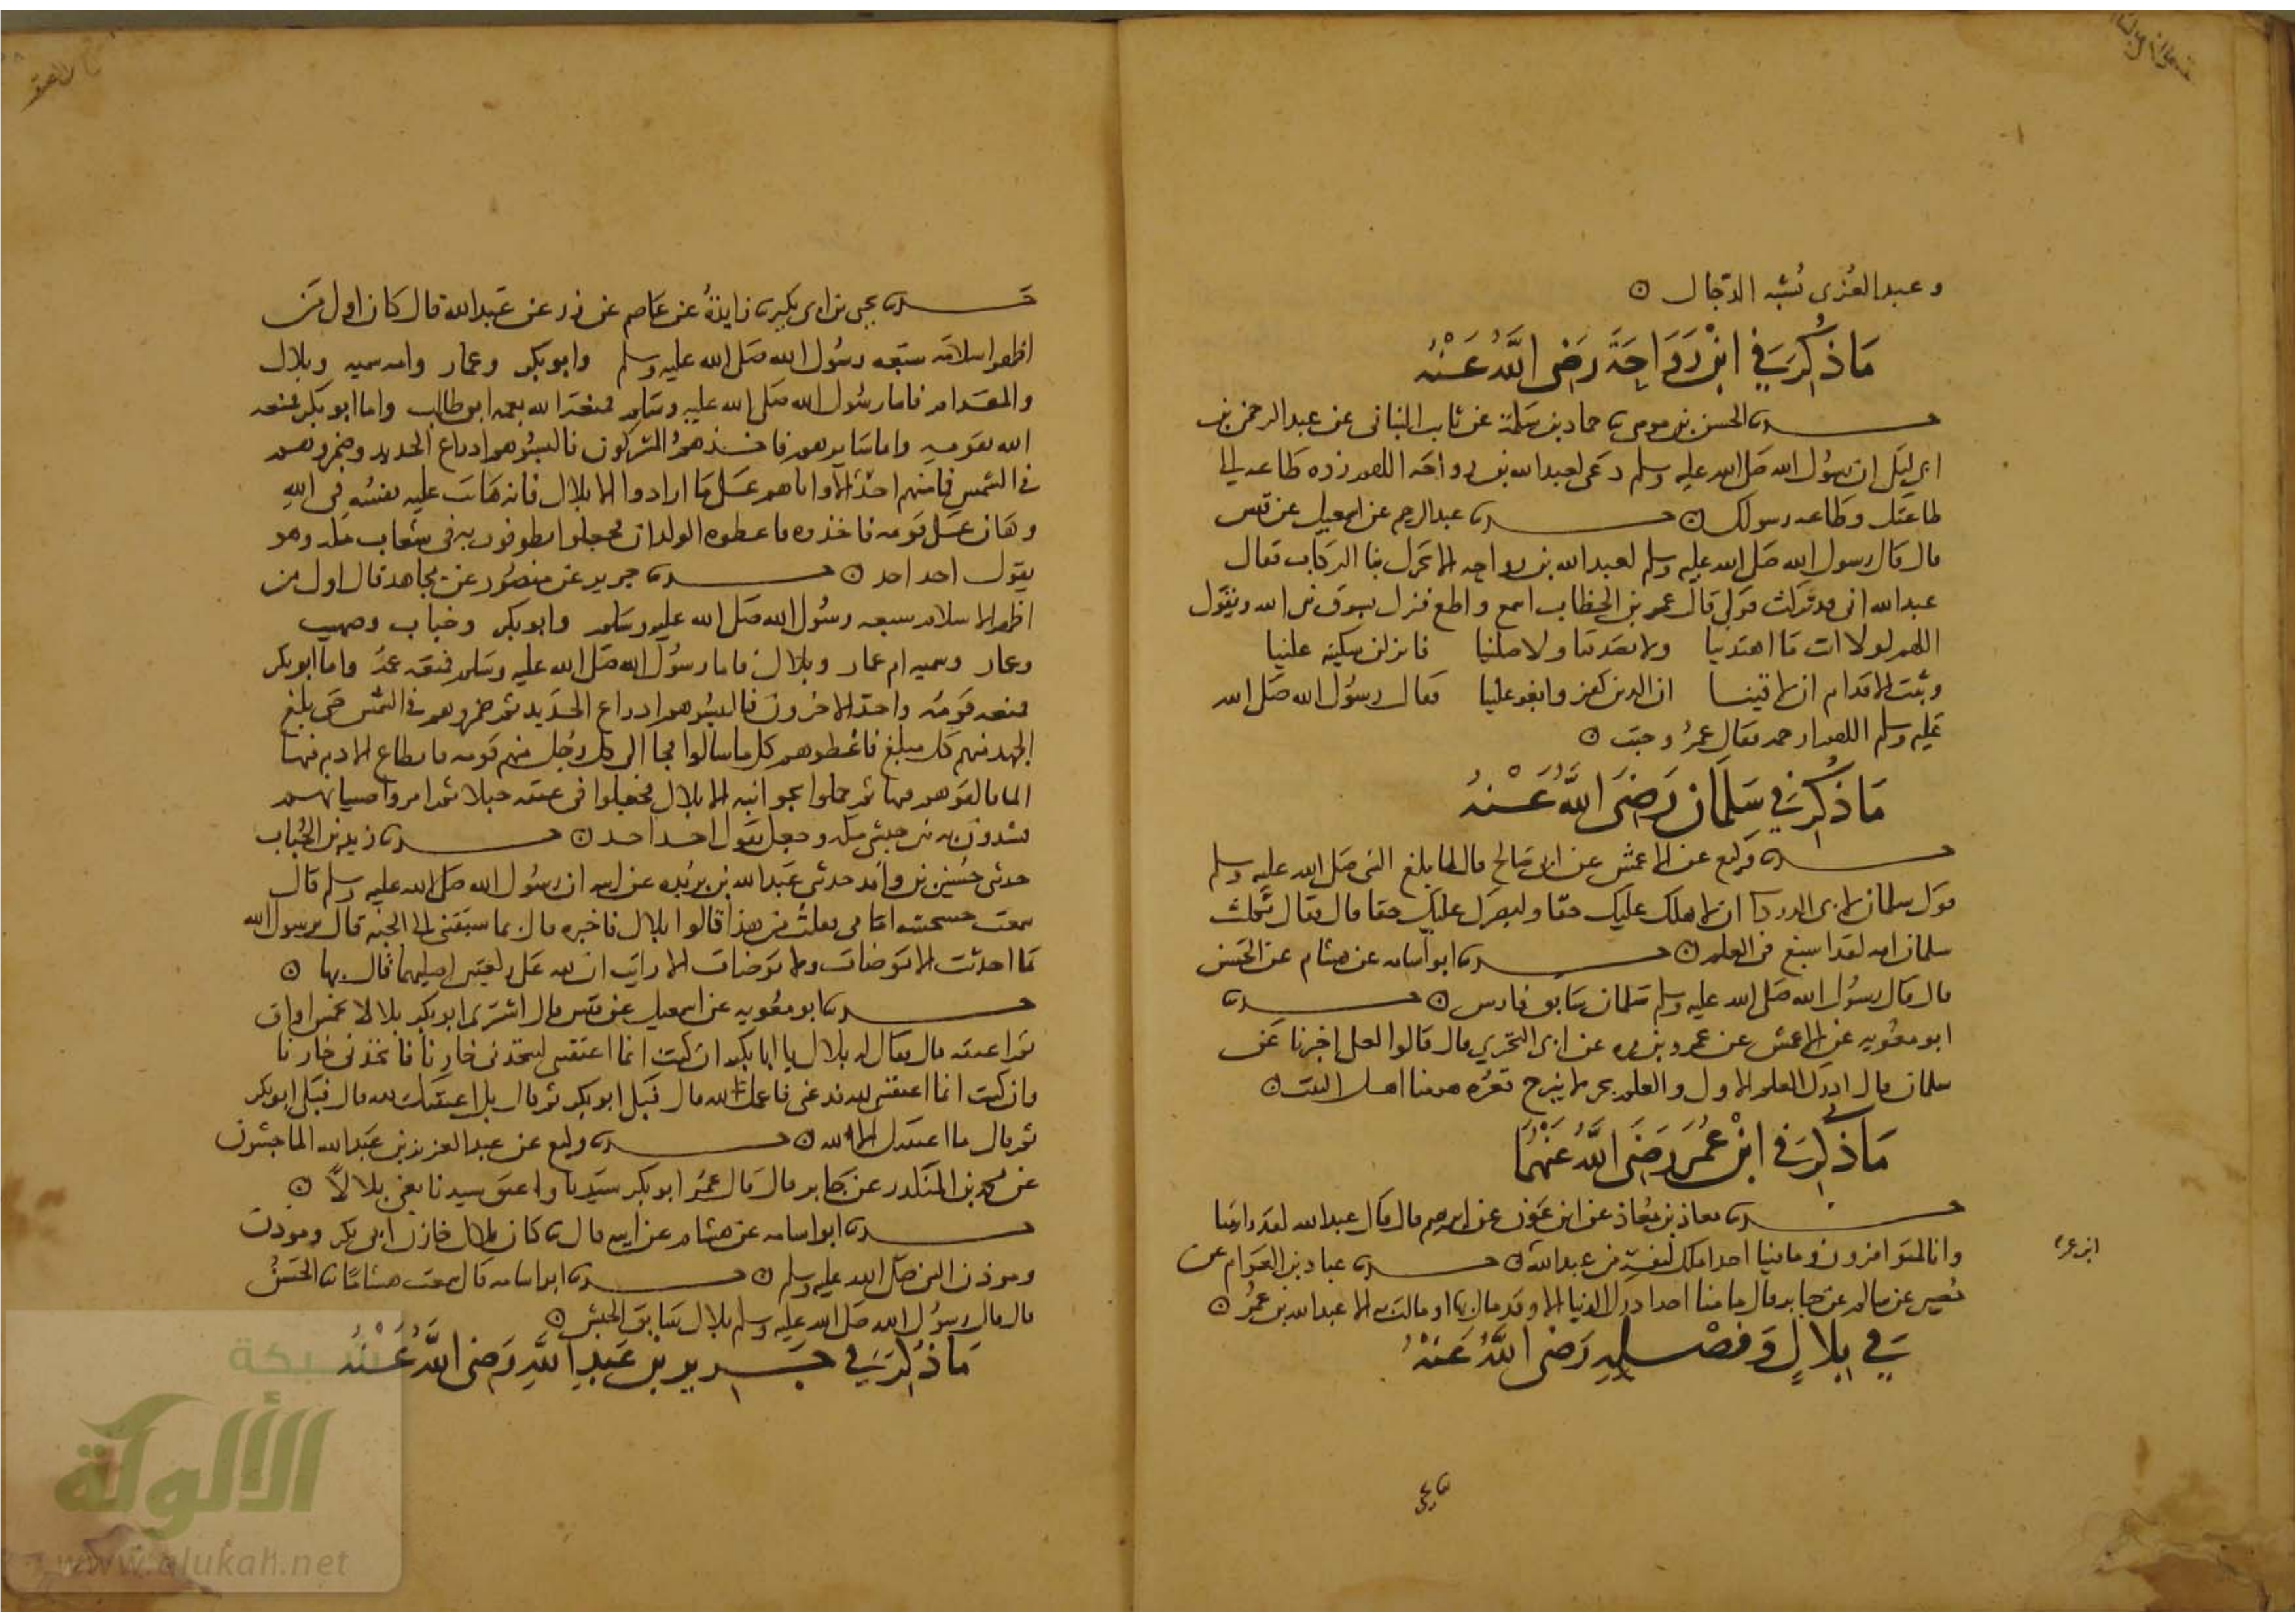 وعبد العزى يشبه الدجال ⊙
مَا ذُكِرَ فِي ابْنِ رَوَاحَةَ رَضِيَ اللَّهُ عَنْهُ
حدثنا الحسن بن موسى ثنا حماد بن سلمة عن ثابت البناني عن عبد الرحمن بن
ابي ليلى ان رسول الله صلى الله عليه وسلم دعى لعبد الله بن رواحة اللهم زده طاعة الى
طاعتك وطاعة رسولك ⊙ حدثنا عبد الرحيم عن اسمعيل عن قيس
قال قال رسول الله صلى الله عليه وسلم لعبد الله بن رواحه الا تحرك بنا الركاب فقال
عبد الله اني قد تركت قولي قال عمر بن الخطاب اسمع واطع فنزل يسوق نبي الله ويقول
اللهم لولا انت ما اهتدينا ولا تصدقنا ولا صلينا فانزلن سكينة علينا
وثبت الاقدام ان لاقينا ان الذين كفروا بغوا علينا فقال رسول الله صلى الله
عليه وسلم اللهم ارحمه فقال عمر وجبت ⊙
مَا ذُكِرَ فِي سَلْمَانَ رَضِيَ اللَّهُ عَنْهُ
حدثنا وكيع عن الاعمش عن ابي صالح قال لما بلغ النبي صلى الله عليه وسلم
قول سلمان لابي الدرداء ان لاهلك عليك حقا ولبصرك عليك حقا قال فقال ثكلت
سلمان امه لقد اتسع في العلم ⊙ حدثنا ابو اسامه عن هشام عن الحسن
قال قال رسول الله صلى الله عليه وسلم سلمان سابق فارس ⊙ حدثنا
ابو معويه عن الاعمش عن عمرو بن مره عن ابي البختري قال قالوا لعلي اخبرنا عن
سلمان قال ادرك العلم الاول والعلم بحر لا ينزح قعره هو منا اهل البيت ⊙
مَا ذُكِرَ فِي ابْنِ عُمَرَ رَضِيَ اللَّهُ عَنْهُمَا
حدثنا معاذ بن معاذ عن ابن عون عن ابرهيم قال قال عبد الله لقد رايتنا
وانا لمتوافرون وما فينا احد املك لنفسه من عبد الله ⊙ حدثنا عباد بن العوام عن
ابن عمر
حصين عن سالم عن جابر قال ما منا احد ادرك الدنيا الا وقد مال بها او مالت به الا عبد الله بن عمر ⊙
فِي بِلَالٍ وَفَضْلِهِ رَضِيَ اللَّهُ عَنْهُ
حدثنا يحيى بن ابي بكير ثنا زايدة عن عاصم عن زر عن عبد الله قال كان اول من
اظهر اسلامه سبعه رسول الله صلى الله عليه وسلم وابو بكر وعمار وامه سميه وبلال
والمقداد فاما رسول الله صلى الله عليه وسلم فمنعه الله بعمه ابي طالب واما ابو بكر فمنعه
الله بقومه واما سايرهم فاخذهم المشركون فالبسوهم ادراع الحديد وصهروهم
في الشمس فما منهم احد الا واتاهم على ما ارادوا الا بلال فانه هانت عليه نفسه في الله
وهان على قومه فاخذوه فاعطوه الولدان فجعلوا يطوفون به في شعاب مكه وهو
يقول احد احد ⊙ حدثنا جرير عن منصور عن مجاهد قال اول من
اظهر الاسلام سبعه رسول الله صلى الله عليه وسلم وابو بكر وخباب وصهيب
وعمار وسميه ام عمار وبلال فاما رسول الله صلى الله عليه وسلم فمنعه عمه واما ابو بكر
فمنعه قومه واخذ الاخرون فالبسوهم ادراع الحديد ثم صهروهم في الشمس حتى بلغ
الجهد منهم كل مبلغ فاعطوهم كل ما سالوا فجاء الى كل رجل منهم قومه بانطاع الادم فيها
الماء فالقوهم فيها ثم حملوا بجوانبه الا بلال فجعلوا في عنقه حبلا ثم امروا صبيانهم
يشتدون به بين اخشبي مكه وجعل يقول احد احد ⊙ حدثنا زيد بن الحباب
حدثني حسين بن واقد حدثني عبد الله بن بريده عن ابيه ان رسول الله صلى الله عليه وسلم قال
سمعت خشخشه امامي فقلت من هذا قالوا بلال فاخبره قال بما سبقتني الى الجنه قال يا رسول الله
ما احدثت الا توضات ولا توضات الا رايت ان لله علي ركعتين اصليهما قال بها ⊙
حدثنا ابو معويه عن اسمعيل عن قيس قال اشترى ابو بكر بلالا بخمس اواق
ثم اعتقه قال فقال له بلال يا ابا بكر ان كنت انما اعتقتني لتتخذني خازنا فاتخذني خازنا
وان كنت انما اعتقتني لله فدعني فاعمل لله قال فبكى ابو بكر ثم قال بل اعتقتك لله قال فبكى ابو بكر
ثم قال ما اعتقتك الا لله ⊙ حدثنا وكيع عن عبد العزيز بن عبد الله الماجشون
عن محمد بن المنكدر عن جابر قال قال عمر ابو بكر سيدنا واعتق سيدنا يعني بلالا ⊙
حدثنا ابو اسامه عن هشام عن ابيه قال كان بلال خازن ابي بكر وموذن
وموذن النبي صلى الله عليه وسلم ⊙ حدثنا ابو اسامه قال سمعت هشاما ثنا الحسن
قال قال رسول الله صلى الله عليه وسلم بلال سابق الحبش ⊙
مَا ذُكِرَ فِي جَرِيرِ بْنِ عَبْدِ اللَّهِ رَضِيَ اللَّهُ عَنْهُ
شبكة
الألوكة
www.alukah.net